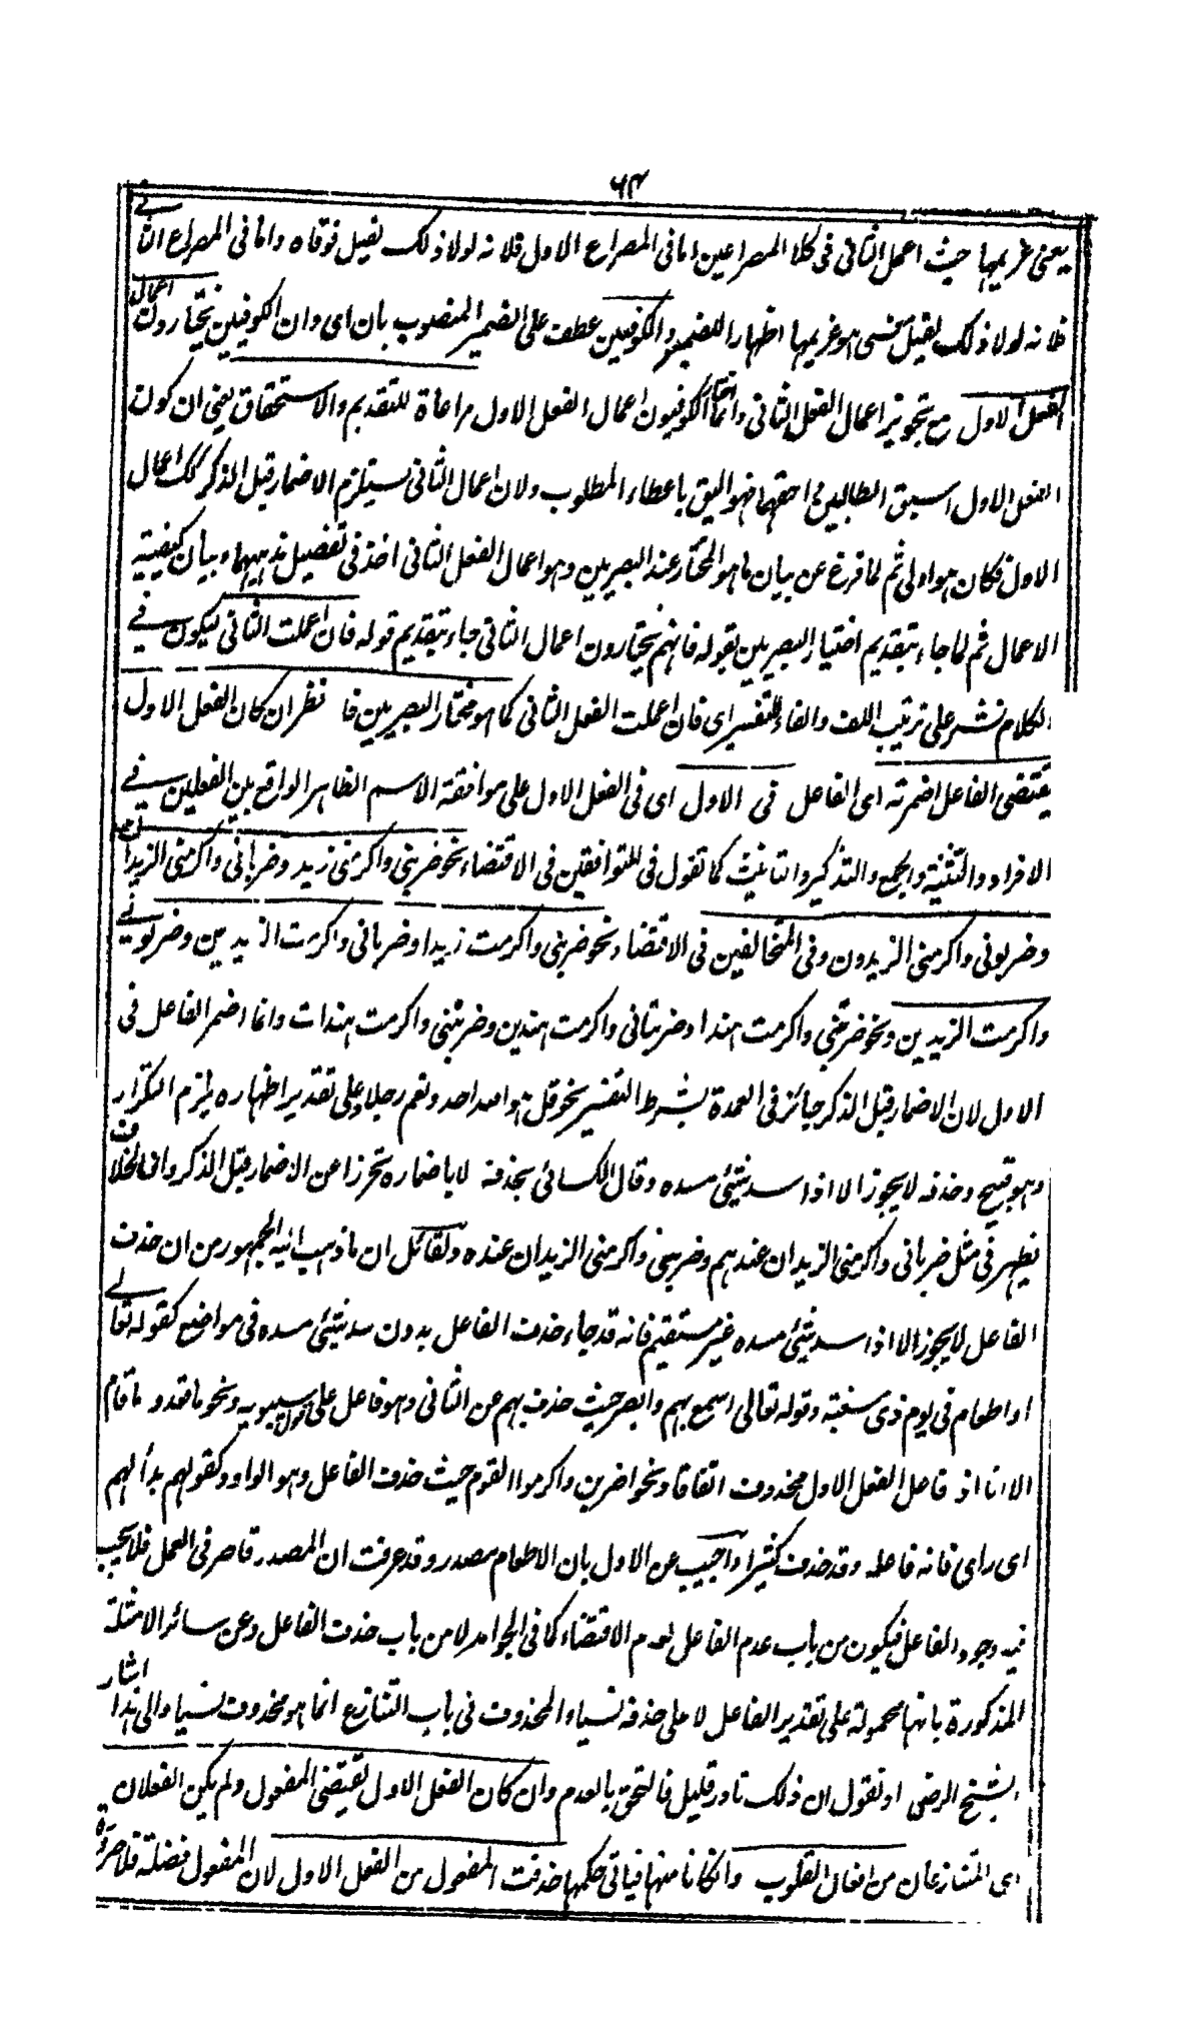 ٦٤
يعنى غريمها حيث اعمل الثانى فى كلا المصراعين اما فى المصراع الاول فلانه لولا ذلك لقيل فوفاه واما فى المصراع الثانے
فلانه لولا ذلك لقيل معنى هو غريمها اظهارا للضمير والكوفيين عطف على الضمير المنصوب بان اى وان الكوفيين يختارون اعمال
الفعل الاول مع تجويز اعمال الفعل الثانى وانما اختار الكوفيون اعمال الفعل الاول مراعاة للتقديم والاستحقاق يعنى ان كون
الفعل الاول اسبق الطالبين احقهما فهو اليق باعطاء المطلوب ولان اعمال الثانى يستلزم الاضمار قبل الذكر لا اعمال
الاول فكان هو اولى ثم لما فرغ عن بيان ما هو المختار عند البصريين وهو اعمال الفعل الثانى اخذ فى تفصيل مذهبيهما وبيان كيفية
الاعمال ثم لما جاء بتقديم اختيار البصريين بقوله فانهم يختارون اعمال الثانى جاء بتقديم قوله فان اعملت الثانى ليكون فے
الكلام نشر على ترتيب اللف والفاء للتفسير اى فان اعملت الفعل الثانى كما هو مختار البصريين فانظر ان كان الفعل الاول
يقتضى الفاعل اضمرته اى الفاعل فى الاول اى فى الفعل الاول على موافقة الاسم الظاهر الواقع بين الفعلين فے
الافراد والتثنية والجمع والتذكير والتانيث كما تقول فى المتوافقين فى الاقتضاء نحو ضربنى واكرمنى زيد وضربانى واكرمنى الزيدان
وضربونى واكرمنى الزيدون وفى المتخالفين فى الاقتضاء نحو ضربنى واكرمت زيدا وضربانى واكرمت الزيدين وضربونے
واكرمت الزيدين ونحو ضربتنى واكرمت هندا وضربتانى واكرمت هندين وضربننى واكرمت هندات وانما اضمر الفاعل فى
الاول لان الاضمار قبل الذكر جائز فى العمدة بشرط التفسير نحو قل هو الله احد ونعم رجلا وعلى تقدير اظهاره يلزم التكرار
وهو قبيح وحذفه لا يجوز الا اذا سد شيئ مسده وقال الكسائى بحذفه لا باضماره تحرزا عن الاضمار قبل الذكر واثر الخلاف
يظهر فى مثل ضربانى واكرمنى الزيدان عندهم وضربنى واكرمنى الزيدان عنده ولقائل ان ما ذهب اليه الجمهور من ان حذف
الفاعل لا يجوز الا اذا سد شيئ مسده غير مستقيم فانه قد جاء حذف الفاعل بدون سد شيئ مسده فى مواضع كقوله تعالے
او اطعام فى يوم ذى مسغبة وقوله تعالى اسمع بهم وابصر حيث حذف بهم عن الثانى وهو فاعل على قول سيبويه ونحو ما قعد وما قام
الا انا اذ فاعل الفعل الاول محذوف اتفاقا ونحو اضربن واكرموا القوم حيث حذف الفاعل وهو الواو وكقولهم بدأ لهم
اى راى فانه فاعله وقد حذف كثيرا واجيب عن الاول بان الاطعام مصدر وقد عرفت ان المصدر قاصر فى العمل فلا يجب
فيه وجود الفاعل فيكون من باب عدم الفاعل لعدم الاقتضاء كما فى الجوامد لا من باب حذف الفاعل وعن سائر الامثلة
المذكورة بانها محمولة على تقدير الفاعل لا على حذفه نسيا والمحذوف فى باب التنازع انما هو محذوف نسيا والى هذا اشار
الشيخ الرضى او نقول ان ذلك نادر قليل فالتحق بالعدم وان كان الفعل الاول يقتضى المفعول ولم يكن الفعلان
اى المتنازعان من افعال القلوب وان كانا منها فياتى حكمها حذفت المفعول من الفعل الاول لان المفعول فضلة فلا ضرورة